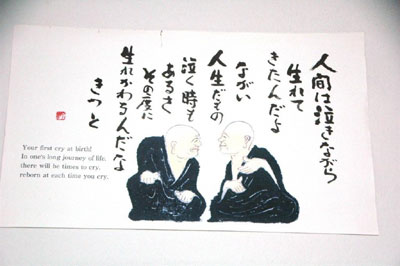 人間は泣きながら
生れて
きたんだよ
ながい
人生だもの
泣く時も
あるさ
その度に
生れかわるんだな
きっと
Your first cry at birth!
In one's long journey of life,
there will be times to cry,
reborn at each time you cry.